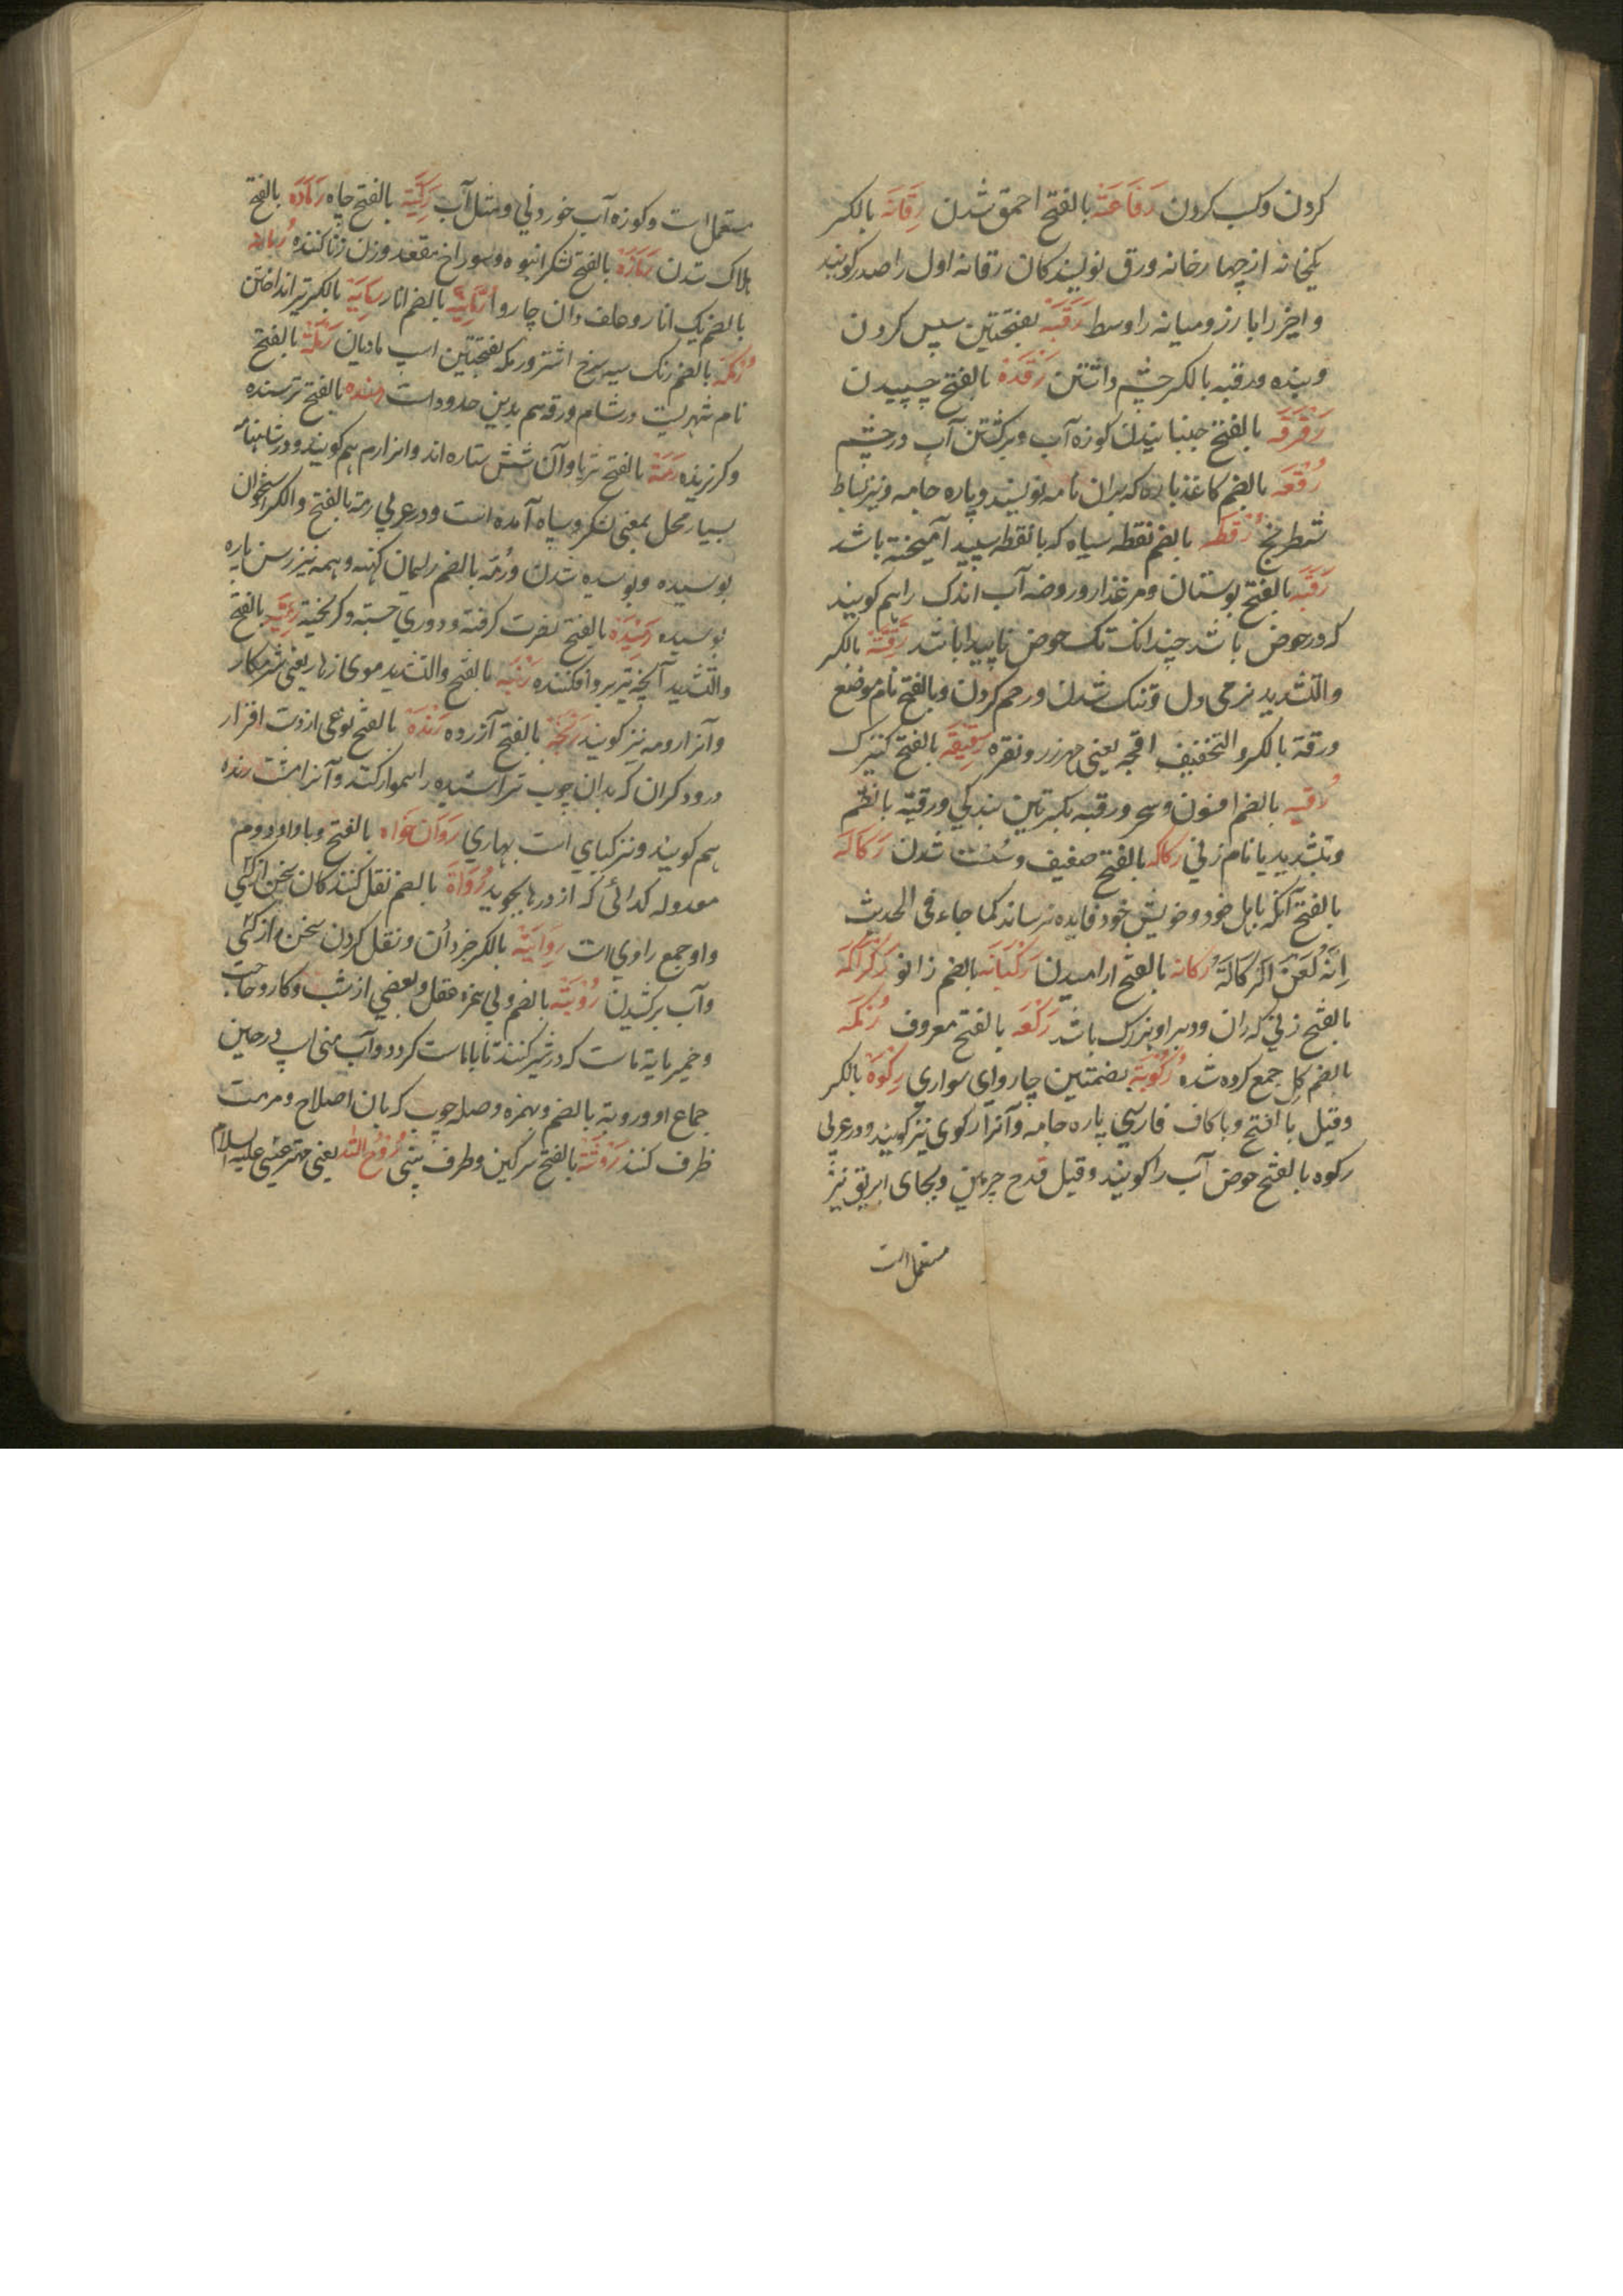 کردن وکسب کردن رَقَاعَة بالفتح احمق شدن رِقَانَه بالکسر
یکخانه از چهارخانه ورق نویسندکان رقانه اول را صدر کویند
و اخر را بارز و میانه را وسط رَقَبَه بفتحتین سپس کردن
و بنده ورقبه بالکسر چشم داشتن رَقْدَة بالفتح چسپیدن
رَقْرَقَه بالفتح جنبانیدن کوزه آب و برکشتن آب در چشم
رُقْعَه بالضم کاغذ پاره که بران نامه نویسند و پاره جامه و نیز بساط
شطرنج رُقْطَه بالضم نقطه سیاه که با نقطه سپید آمیخته باشد
رَقَّه بالفتح بوستان و مرغزار و روضه آب اندک را هم کویند
که در حوض باشد چندانک تک حوض ناپیدا باشد رِقَّة بالکسر
والتشدید نرمی دل و تنک شدن و رحم کردن و بالفتح نام موضع
ورقة بالکسر والتخفیف اقچه یعنی مهر زر و نقره رَقِیقَه بالفتح کنیزک
رُقیه بالضم افسون و سحر ورقبه بکسرتین بندکی ورقیّه بالضم
وتشدید یا نام زنی رکاکه بالفتح ضعیف و سُست شدن رَکَاکَه
بالفتح آنکه باهل خود و خویش خود فایده نرساند کما جاء فی الحدیث
اِنَّهُ لَعَنَ الرُکَاکَةَ رکانه بالفتح ارامیدن رَکْبَانَه بالضم زانو رَکْرَاکَه
بالفتح زنی که ران و دبر او بزرک باشد رَکْعَه بالفتح معروف رُکْمَه
بالضم کِل جمع کرده شده رُکُوبَة بضمتین چاروای سواری رِکْوَه بالکسر
وقیل بالفتح و باکاف فارسی پاره جامه و آنرا رکوی نیز کویند و در عربی
رکوه بالفتح حوض آب را کویند وقیل قدح چرمین و بجای ابریق نیز
مستعمل است
مستعمل است و کوزه آب خوردنی و مثل آب رَکِیَّه بالفتح چاه رَمَادَه بالفتح
هلاک شدن رَمَّازَه بالفتح لشکر انبوه و سوراخ مقعد و زن زناکننده
بالضم یک انار و علف دان چاروا بالضم انار رِمَایَة بالکسر تیر انداختن
رُمکَه بالضم رنک سیه سرخ اشتر ورمکه بفتحتین اسپ مادیان رَمْلَة بالفتح
نام شهریست در شام ورقه هم بدین حدود است رمنده بالفتح ترسنده
و کریزنده رَمَة بالفتح ثریا و آن شش ستاره اند و انرا رم هم کویند و در شاهنامه
بسیار محل بمعنی لشکر و سپاه آمده است و در عربی رمة بالفتح و الکسر استخوان
بوسیده و بوسیده شدن ورُمَّه بالضم ریسمان کهنه و همه نیز رسن پاره
بوسیده رَمِیْدَه بالفتح نفرت کرفته و دوری جسته و کریخته رَمِیَّه بالفتح
والتشدید آنچه تیر برو افکنند رنبه بالفتح والتشدید موی زهار یعنی شرمکاه
و آنرا رومه نیز کویند رَنْجَه بالفتح آزرده رَنْدَه بالفتح نوعی از دست افزار
درودکران که بدان چوب تراشیده را هموار کنند و آنرا مشت رنده
هم کویند و نیز کیاهی است بهاری رَوَانْخواه بالفتح و باواو دوم
معدوله کدائی که از درها بجوید رُوَاة بالضم نقل کنندکان سخن از کسی
واو جمع راوی است رِوَایَتْ بالکسر خبر دادن و نقل کردن سخن و از کسی
و آب برکشیدن رُوبَة بالضم و بی همزه عقل و بعضی از شب و کار و حاجت
و خمیر مایهٔ ماست که در شیر کنند تا باماست کردد و آب منی اسپ در حین
جماع او وروبة بالضم و بهمزه وصله چوب که بان اصلاح و مرمت
ظرف کنند رَوْثَة بالفتح سرکین و طرف بینی رُوحُ اللّه یعنی مهتر عیسی علیه السلام